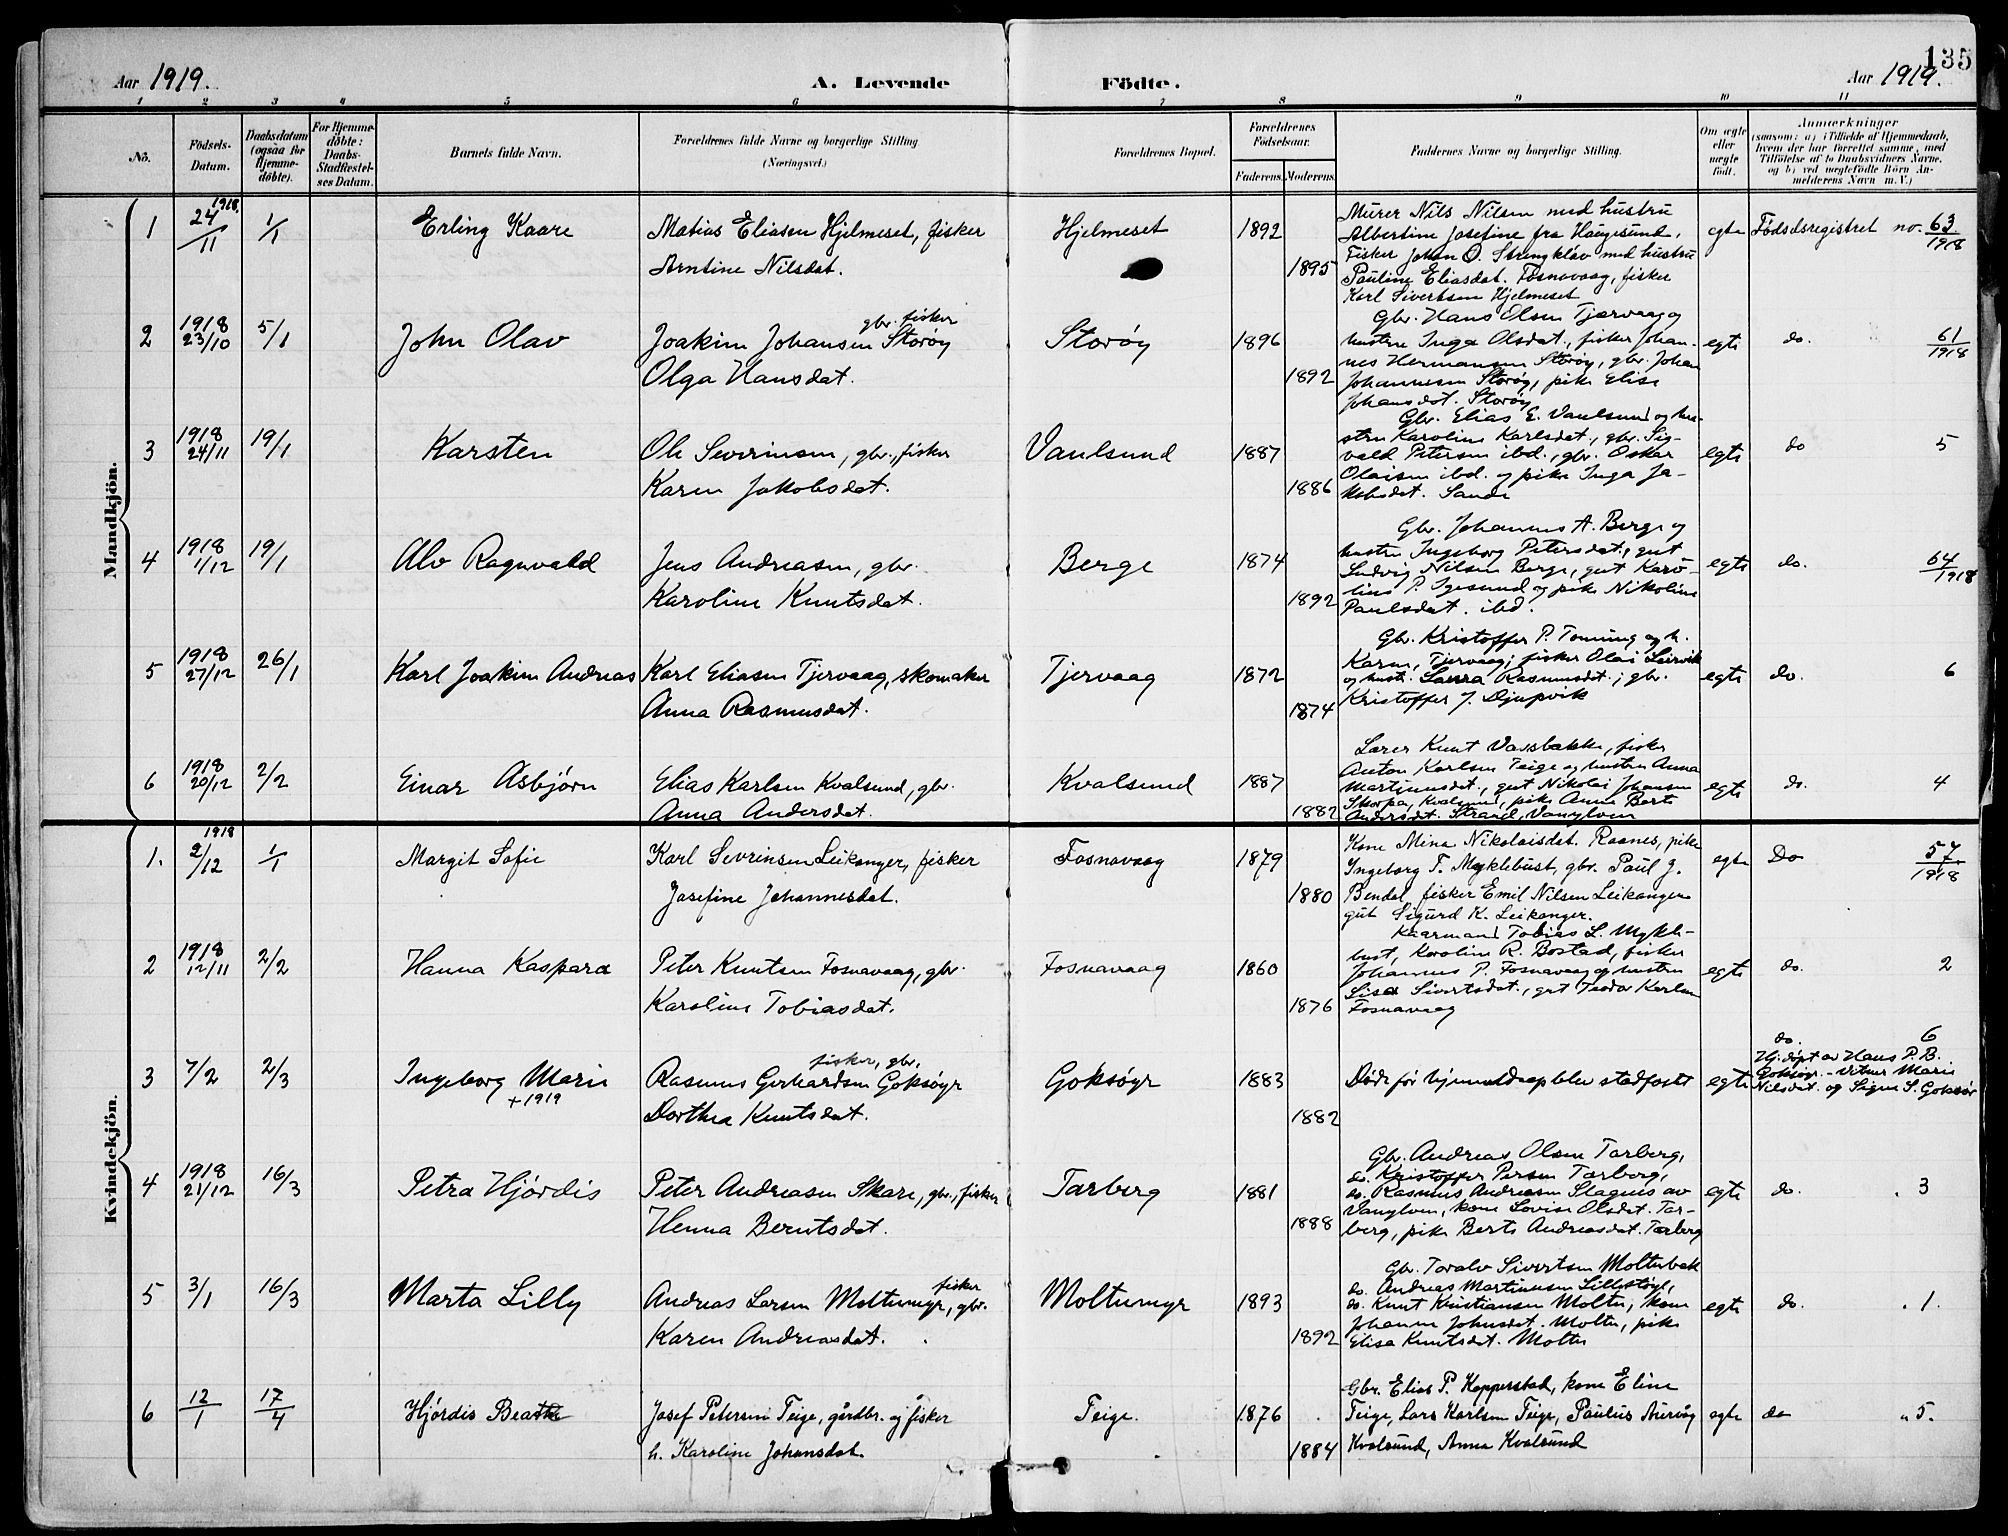 135
Aar 1919.
A. Levende Födte.
Aar 1919.
1 2 3 4 5 6 7 8 9 10 11
No.
Födsels-
Datum.
Daabsdatum
(ogsaa for
Hjemme-
döbte).
For Hjemme-
döbte:
Daabs-
Stadfæstel-
ses Datum.
Barnets fulde Navn.
Forældrenes fulde Navne og borgerlige Stilling
(Næringsvei.)
Forældrenes Bopæl.
Forældrenes
Födselsaar.
Faderens. Moderens.
Faddernes Navne og borgerlige Stilling.
Om ægte
eller
uægte
födt.
Anmærkninger
(saasom: a) i Tilfælde af Hjemmedaab,
hvem der har forrettet samme, med
Tilföielse af to Daabsvidners Navne,
og b) ved uægtefödte Börn An-
melderens Navn m. V.)
Mandkjön.
1 24/11 1918. 1/1 Erling Kaare
Matias Eliasen Hjelmeset, fisker
Arntine Nilsdat.
Hjelmeset 1892 1895
Murer Nils Nilsen med hustru
Albertine Josefine fra Haugesund,
Fisker Johan O. Strengkløv med hustru
Pauline Eliasdat. Fosnavaag, fisker
Karl Sivertsen Hjelmeset
egte Fødselsregistret no. 63/1918
2 1918 23/10 5/1 John Olav
gbr. fisker
Joakim Johansen Storøy
Olga Hansdat.
Storøy 1896 1892
Gbr. Hans Olsen Tjervaag og
hustru Inga Olsdat., fisker Johan-
nes Hermansen Storøy, gbr. Johan
Johannesen Storøy, pike Elise
Johansdat. Storøy
egte do. 61/1918
3 1918 24/11 19/1 Karsten
Ole Severinsen, gbr., fisker
Karen Jakobsdat.
Vaulsund 1887 1886
Gbr. Elias E. Vaulsund og hu-
stru Karoline Karlsdat., gbr. Sig-
vald Petersen ibd., gbr. Oskar
Olaisen ibd. og pike Inga Ja-
kobsdat. Sande
egte do 5
4 1918 1/12 19/1 Alv Ragnvald
Jens Andreasen, gbr.
Karoline Knutsdat.
Berge 1874 1892
Gbr. Johannes A. Berge og
hustru Ingeborg Petersdat., gut
Ludvig Nilsen Berge, gut Karo-
lius P. Igesund og pike Nikoline
Paulsdat. ibd.
egte do. 64/1918
5 1918 27/12 26/1 Karl Joakim Andreas
Karl Eliasen Tjervaag, skomaker
Anna Rasmusdat.
Tjervaag 1872 1874
Gbr. Kristoffer P. og h.
Karen, Tjervaag; fisker Olai Leirvik
og hustr. Laura Rasmusdat.; gbr.
Kristoffer J. Djupvik
egte do. 6
6 1918 20/12 2/2 Einar Asbjørn
Elias Karlsen Kvalsund, gbr.
Anna Andersdat.
Kvalsund 1887 1882
Lærer Knut Vassbakke, fisker
Anton Karlsen Teige og hustru Anna
Martinusdat., gut Nikolai Johansen
Skorpa, Kvalsund, pike Anne Berte
Andersdat. Strand, Vanylven
egte do. 4
Kvindekjön.
1. 1918 2/12 1/1 Margit Sofie
Karl Sevrinsen Leikanger, fisker
Josefine Johannesdat.
Fosnavaag 1879 1880
Kone Mina Nikolaisdat. Raanes, pike
Ingeborg T. Myklebust, gbr. Paul J.
Bendal, fisker Emil Nilsen Leikanger
gut Sigurd K. Leikanger.
egte Do 57/1918
2 1918 12/11 2/2 Hanna Kaspara
Peter Knutsen Fosnavaag, gbr.
Karoline Tobiasdat.
Fosnavaag 1860 1876
Kaarmand Tobias L. Mykle-
bust, Karoline R. Bostad, fisker
Johannes P. Fosnavaag og hustru
Lisa Sivertsdat., gut Teodor Karlsen
Fosnavaag
egte do. 2
3 7/2 2/3 Ingeborg Marie
+ 1919
fisker, gbr.
Rasmus Gerhardsen Goksøyr
Dorthea Knutsdat.
Goksøyr 1883 1882
Døde før hjemmedaap blev stadfæstet
egte do. 6
Hj.døpt av Hans P. B.
Goksøyr. - Vitner Marie
Nilsdat. og Signe S. Goksøyr
4 1918 21/12 16/3 Petra Hjórdis
Peter Andreasen Skare, gbr., fisker
Henna Berntsdat.
Tarberg 1881 1888
Gbr. Andreas Olsen Tarberg,
do. Kristoffer Persen Tarberg,
do. Rasmus Andreasen Slagnes av
Vanylven, kone Lovise Olsdat. Tar-
berg, pike Berte Andreasdat. Tarberg
egte do. 3
5 3/1 16/3 Marta Lilly
fisker
Andreas Larsen Moltumyr, gbr.
Karen Andreasdat.
Moltumyr 1893 1892
Gbr. Toralv Sivertsen Molterbak
do. Andreas Martinusen
do. Knut Kristiansen Moltu, kone
Johanne Johnsdat. Moltu, pike
Elisa Knutsdat. Moltu
egte do. 1.
6 12/1 17/4 Hjórdis Beathe
Josef Petersen Teige, gårdbr. og fisker
h. Karoline Johansdat.
Teige. 1876 1884
Gbr. Elias P. Kopperstad, kone Eline
Teige, Lars Karlsen Teige, Paulus Aurvåg
Kvalsund, Anna Kvalsund
egte do " 5.